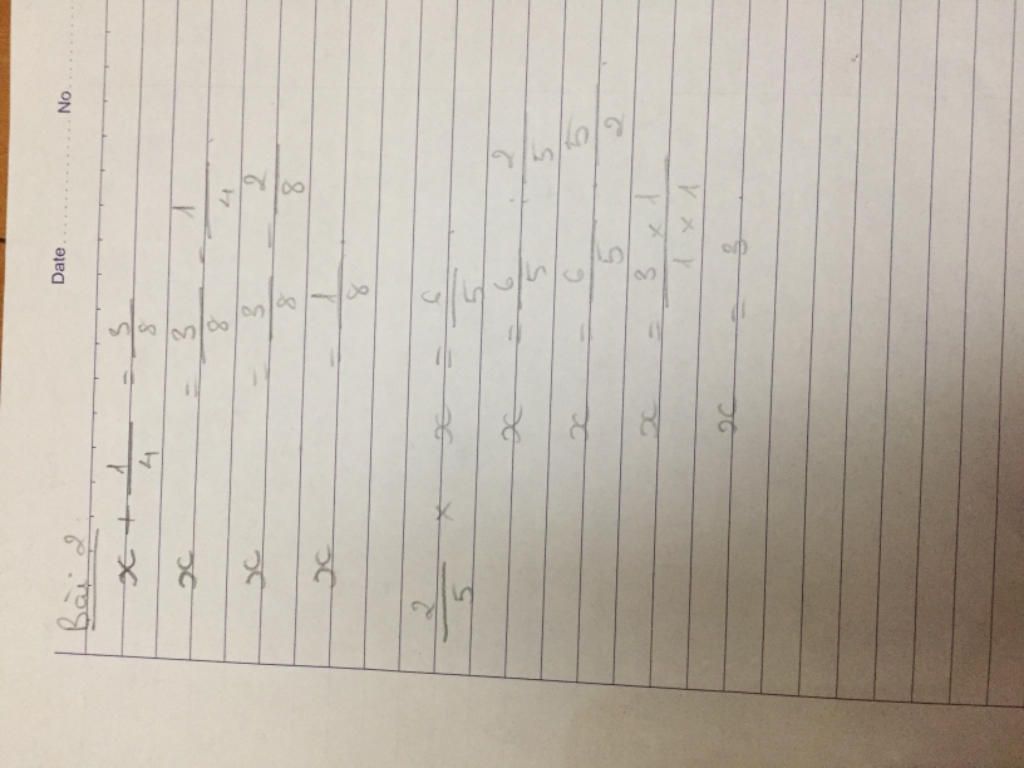 Date No.
Bài 2
x + 1/4 = 3/8
x = 3/8 - 1/4
x = 3/8 - 2/8
x = 1/8
2/5 × x = 6/5
x = 6/5 : 2/5
x = 6/5 5/2
x = 3 × 1/1 × 1
x = 3